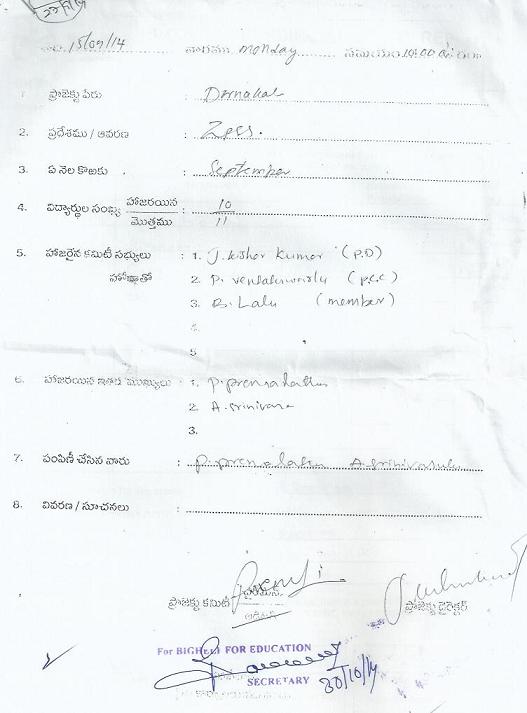 15/09/14 వారము monday సమయం 10:00
1. ప్రాజెక్టు పేరు : Dornakal
2. ప్రదేశము / ఆవరణ : Zpss.
3. ఏ నెల కొఱకు : September
4. విద్యార్థుల సంఖ్య హాజరయిన / మొత్తము : 10 / 11
5. హాజరైన కమిటీ సభ్యులు : 1. J. kishor kumar (P.D)
2. P. venkateswarlu (p.c.c)
3. B. Lalu (member)
4.
5
6. హాజరయిన ఇతర ముఖ్యులు : 1. P. premalatha
2. A. srinivas
3.
7. పంపిణీ చేసిన వారు : P. premalatha A. Srinivasulu
8. వివరణ / సూచనలు :
ప్రాజెక్టు కమిటీ ప్రాజెక్టు డైరెక్టర్
FOR EDUCATION
SECRETARY 30/10/14